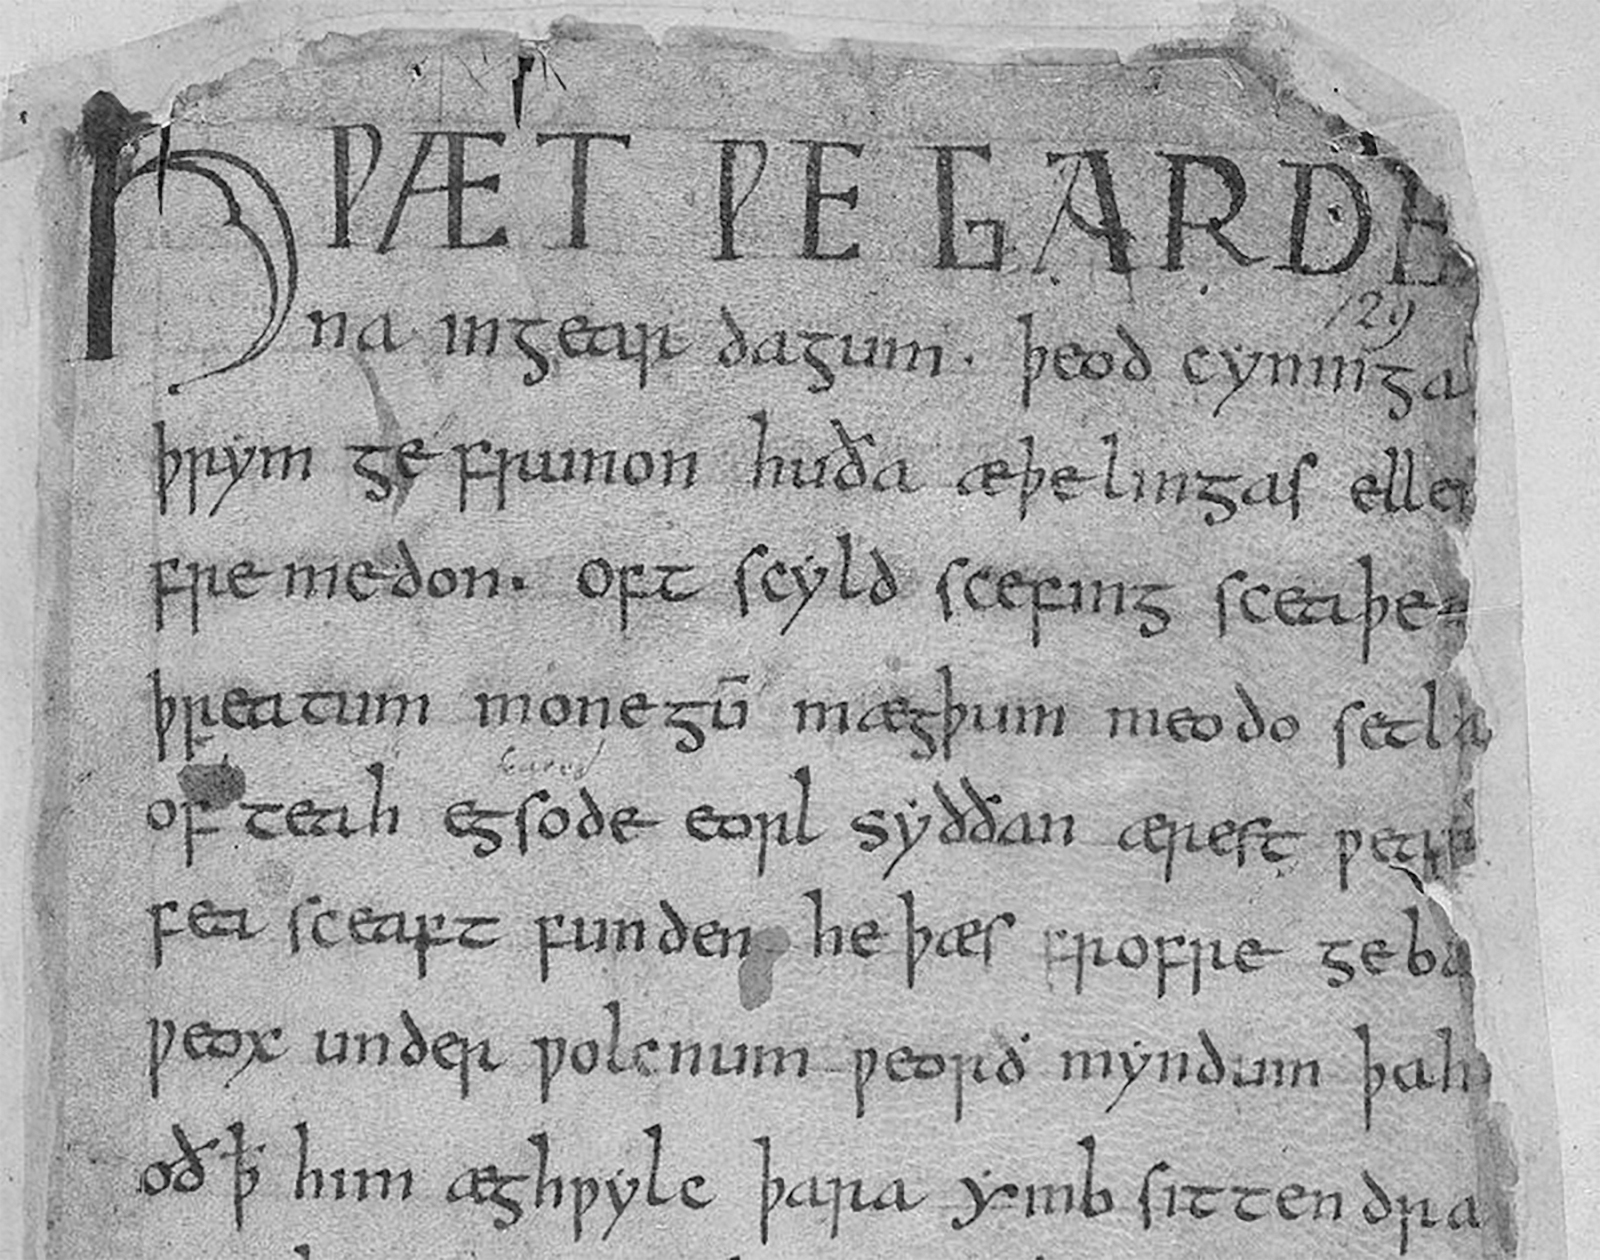 HǷÆT ǷE GARDE
129
na ingear dagum. þeod cyninga
þrym ge frunon huða æþelingas ellen
fremedon. oft scyld scefing sceaþe
þreatum monegū mægþum meodo setla
of teah egsode eorl syððan ærest ƿear
fea sceaft funden he þæs frofre geba
ƿeox under ƿolcnum ƿeorð myndum þah
oð ꝥ him æghƿylc þara ymb sittendra